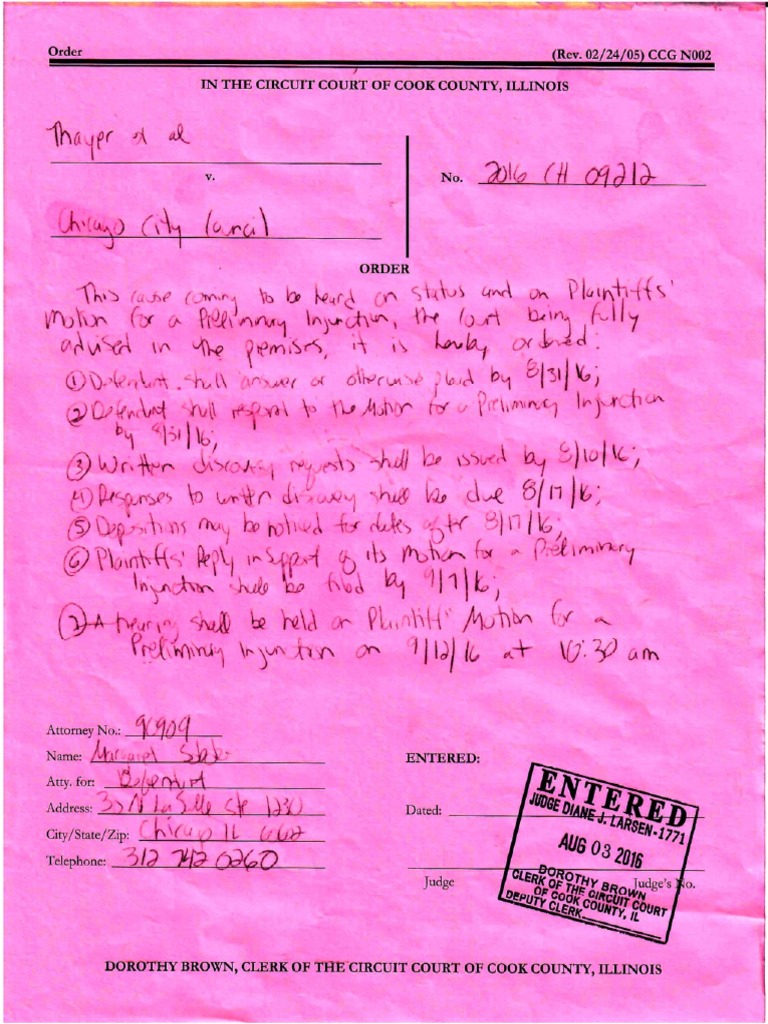 Order (Rev. 02/24/05) CCG N002
IN THE CIRCUIT COURT OF COOK COUNTY, ILLINOIS
Thayer et al
v.
No. 2016 CH 09212
Chicago City Council
ORDER
This cause coming to be heard on status and on Plaintiffs'
Motion for a Preliminary Injunction, the Court being fully
advised in the premises, it is hereby ordered:
① Defendant shall answer or otherwise plead by 8/31/16;
② Defendant shall respond to the Motion for a Preliminary Injunction
by 8/31/16;
③ Written discovery requests shall be issued by 8/10/16;
④ Responses to written discovery shall be due 8/17/16;
⑤ Depositions may be noticed for dates after 8/17/16;
⑥ Plaintiffs' Reply in Support of its Motion for a Preliminary
Injunction shall be filed by 9/7/16;
⑦ A hearing shall be held on Plaintiffs' Motion for a
Preliminary Injunction on 9/12/16 at 10:30 am
Attorney No.: 90909
Name: Margaret
Atty. for: Defendant
Address: N LaSalle Ste 1230
City/State/Zip: Chicago IL
Telephone: 312 742 0260
ENTERED:
Dated:
Judge Judge's No.
ENTERED
JUDGE DIANE J. LARSEN-1771
AUG 03 2016
DOROTHY BROWN
CLERK OF THE CIRCUIT COURT
OF COOK COUNTY, IL
DEPUTY CLERK
DOROTHY BROWN, CLERK OF THE CIRCUIT COURT OF COOK COUNTY, ILLINOIS